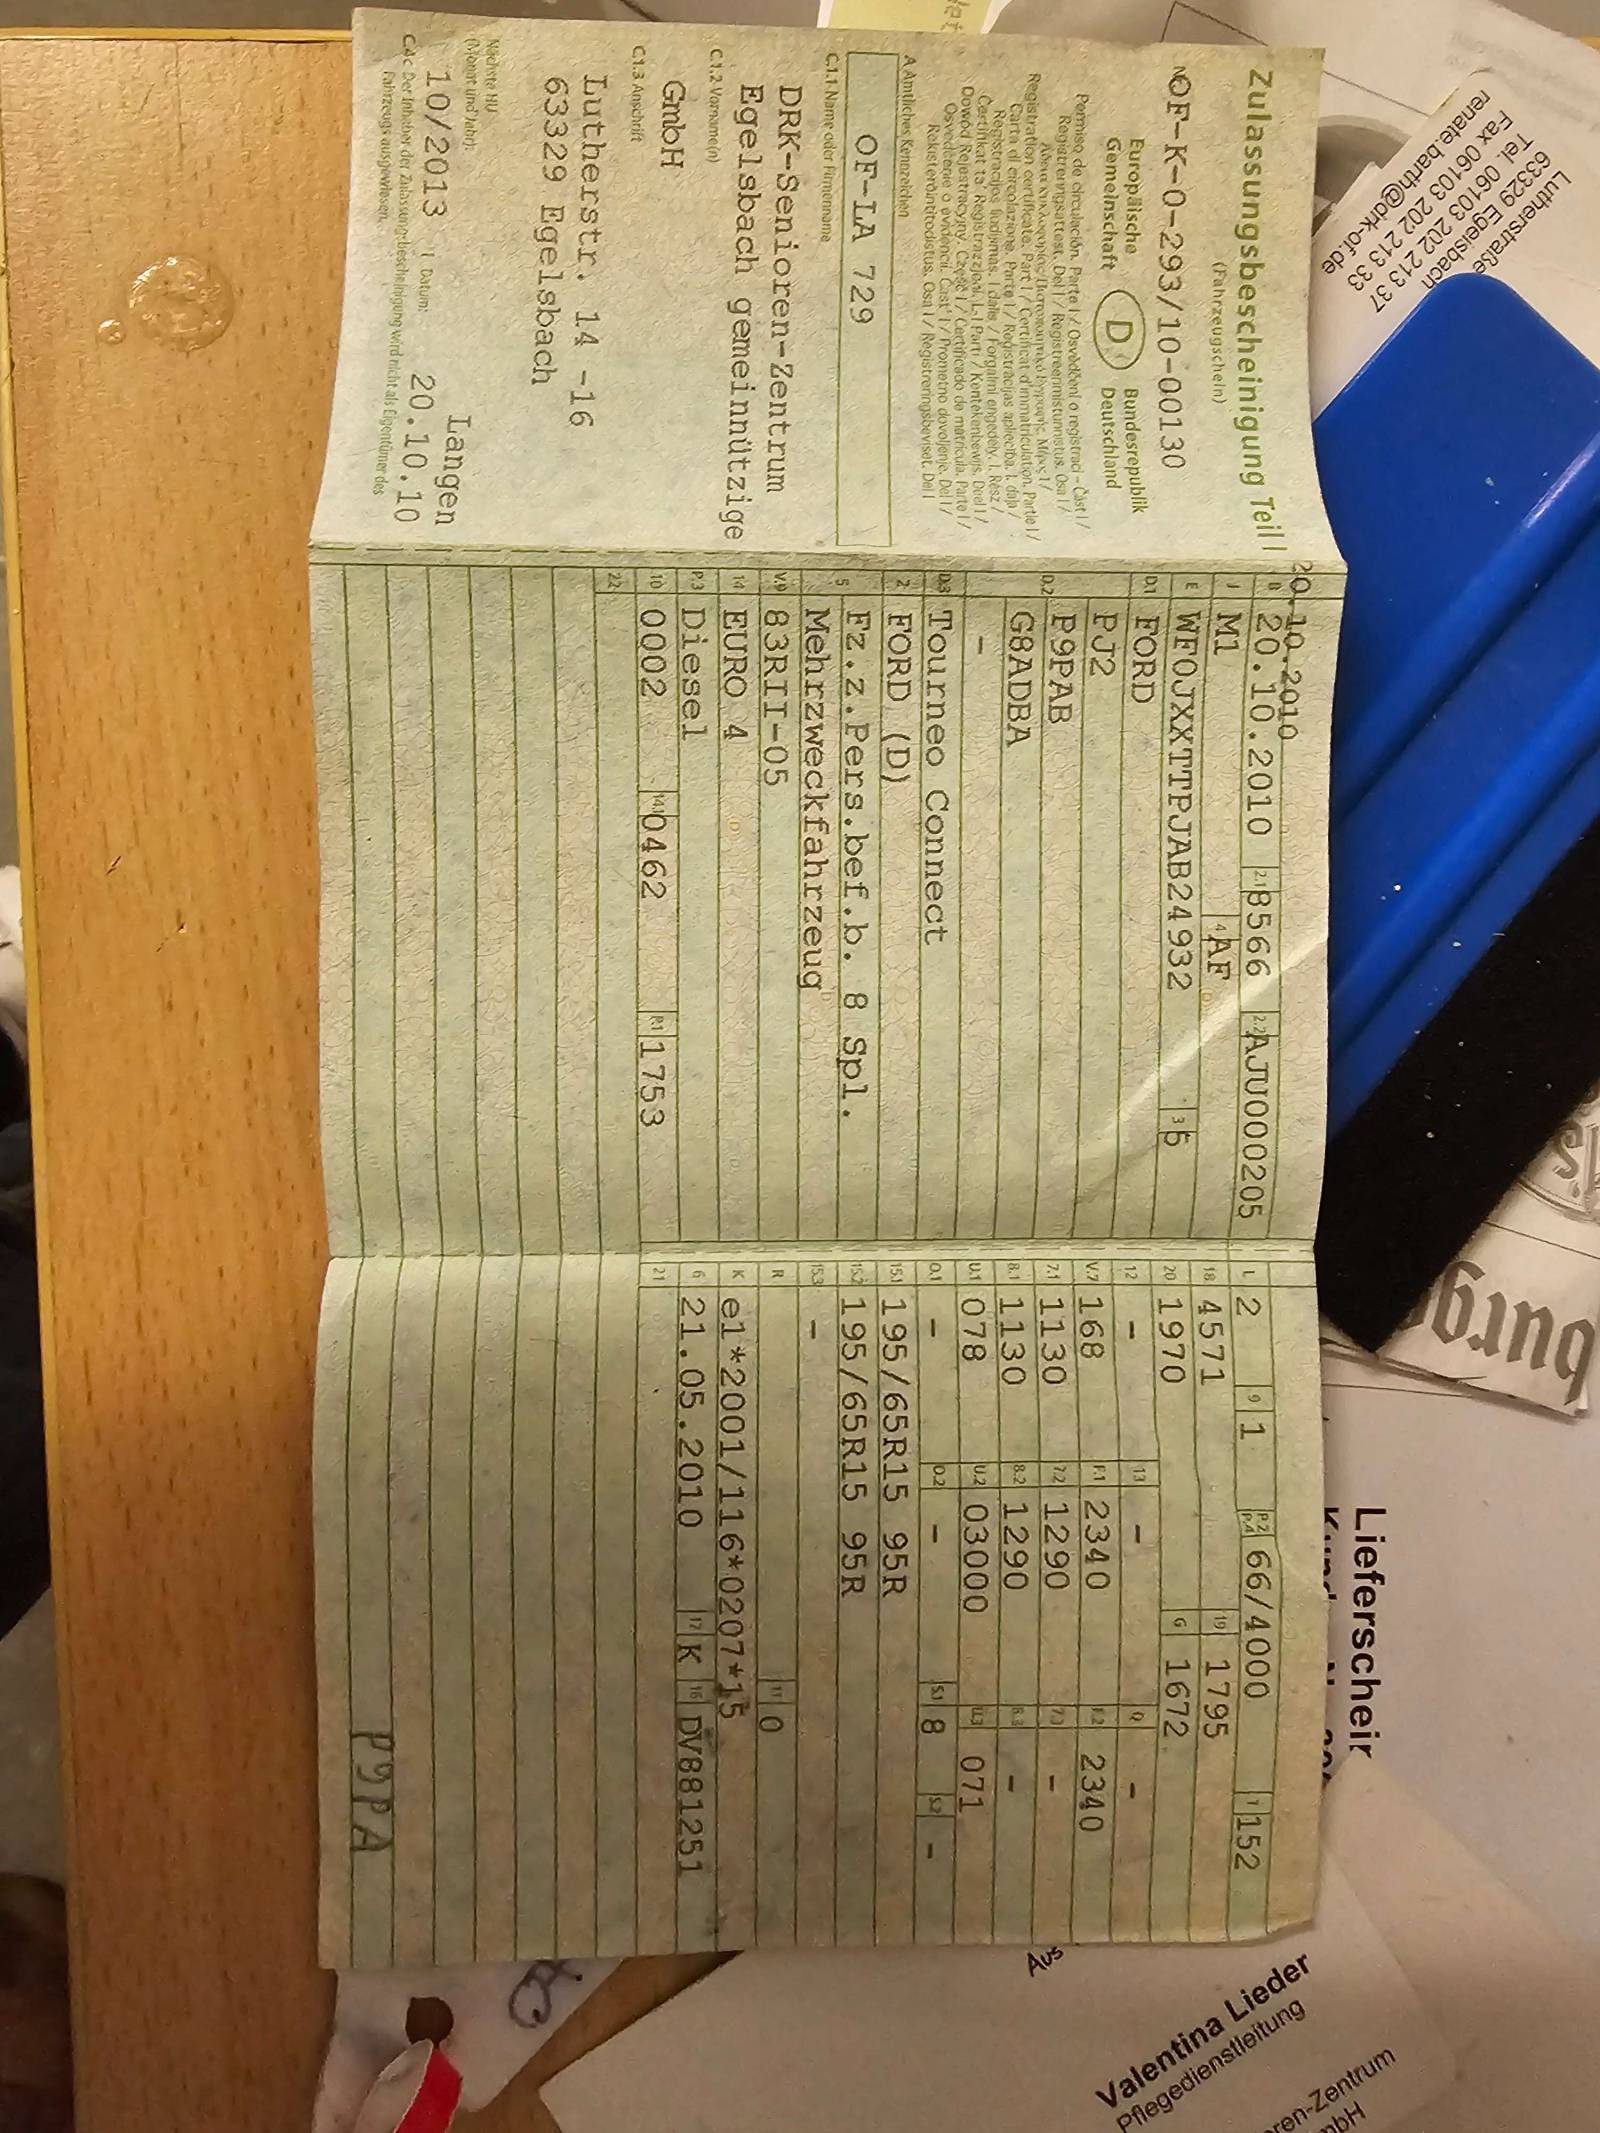 Zulassungsbescheinigung Teil I
(Fahrzeugschein)
OF-K-0-293/10-00130
Europäische
Gemeinschaft
D
Bundesrepublik
Deutschland
Permiso de circulación. Parte I / Osvědčení o registraci – Část I /
Registreringsattest. Del I / Registreerimistunnistus. Osa I /
Registration certificate. Part I / Certificat d'immatriculation. Partie I /
Carta di circolazione. Parte I / Reģistrācijas apliecība. I. daļa /
Registracijos liudijimas. I dalis / Forgalmi engedély. I. Rész /
Ċertifikat ta' Reġistrazzjoni. L-I Parti / Kentekenbewijs. Deel I /
Dowód Rejestracyjny. Część I / Certificado de matrícula. Parte I /
Osvedčenie o evidencii. Časť I / Prometno dovoljenje. Del I /
Rekisteröintitodistus. Osa I / Registreringsbeviset. Del I
A Amtliches Kennzeichen
OF-LA 729
C.1.1 Name oder Firmenname
DRK-Senioren-Zentrum
Egelsbach gemeinnützige
C.1.2 Vorname(n)
GmbH
C.1.3 Anschrift
Lutherstr. 14 -16
63329 Egelsbach
Nächste HU
(Monat und Jahr):
10/2013
Langen
Datum: 20.10.10
C.4c Der Inhaber der Zulassungsbescheinigung wird nicht als Eigentümer des
Fahrzeugs ausgewiesen.
20.10.2010
B 20.10.2010 2.1 8566 2.2 AJU000205
J M1 4 AF
E WF0JXXTTPJAB24932 3 5
D.1 FORD
PJ2
D.2 P9PAB
G8ADBA
-
D.3 Tourneo Connect
2 FORD (D)
5 Fz.z.Pers.bef.b. 8 Spl.
Mehrzweckfahrzeug
V.9 83RII-05
14 EURO 4
P.3 Diesel
10 0002 14.1 0462 P.1 1753
22
L 2 9 1 P.2 P.4 66/4000 T 152
18 4571 19 1795
20 1970 G 1672
12 - 13 - Q -
V.7 168 F.1 2340 F.2 2340
7.1 1130 7.2 1290 7.3 -
8.1 1130 8.2 1290 8.3 -
U.1 078 U.2 03000 U.3 071
O.1 - O.2 - S.1 8 S.2 -
15.1 195/65R15 95R
15.2 195/65R15 95R
15.3 -
R 11 0
K e1*2001/116*0207*15
6 21.05.2010 17 K 16 DV881251
21
P9PA
Lutherstraße
63329 Egelsbach
Tel. 06103 202 213 37
Fax 06103 202 213 33
renate.barth@drk-of.de
Lieferschein
Aus
Valentina Lieder
Pflegedienstleitung